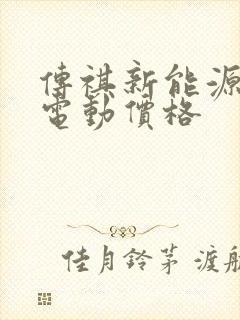 傳祺新能源
電動價格
佳月鈴茅 渡航